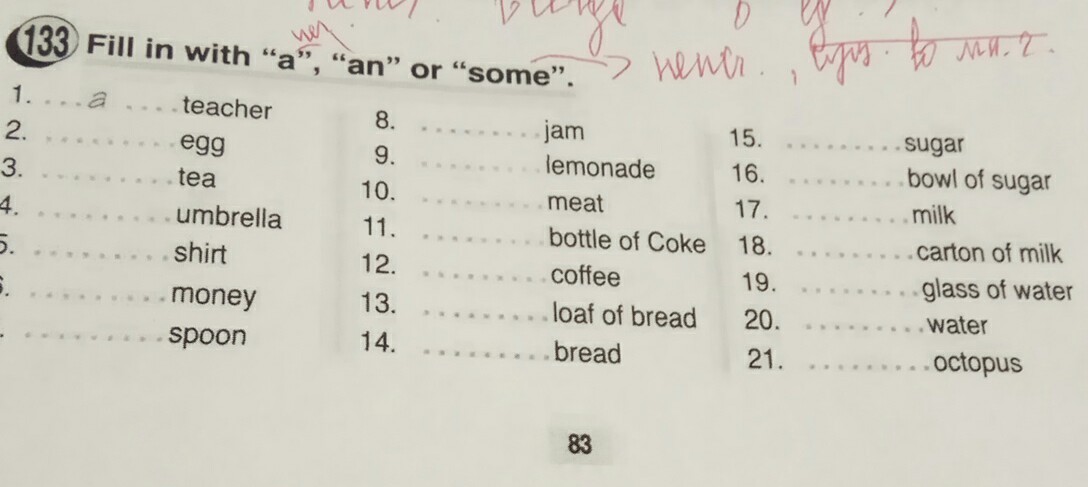 133 Fill in with “a”, “an” or “some”.
неисч., сущ. во мн. ч.
1. ....a....teacher
2. ..........egg
3. ..........tea
4. ..........umbrella
5. ..........shirt
..........money
..........spoon
8. .........jam
9. .........lemonade
10. .........meat
11. .........bottle of Coke
12. .........coffee
13. .........loaf of bread
14. .........bread
15. .........sugar
16. .........bowl of sugar
17. .........milk
18. .........carton of milk
19. .........glass of water
20. .........water
21. .........octopus
83